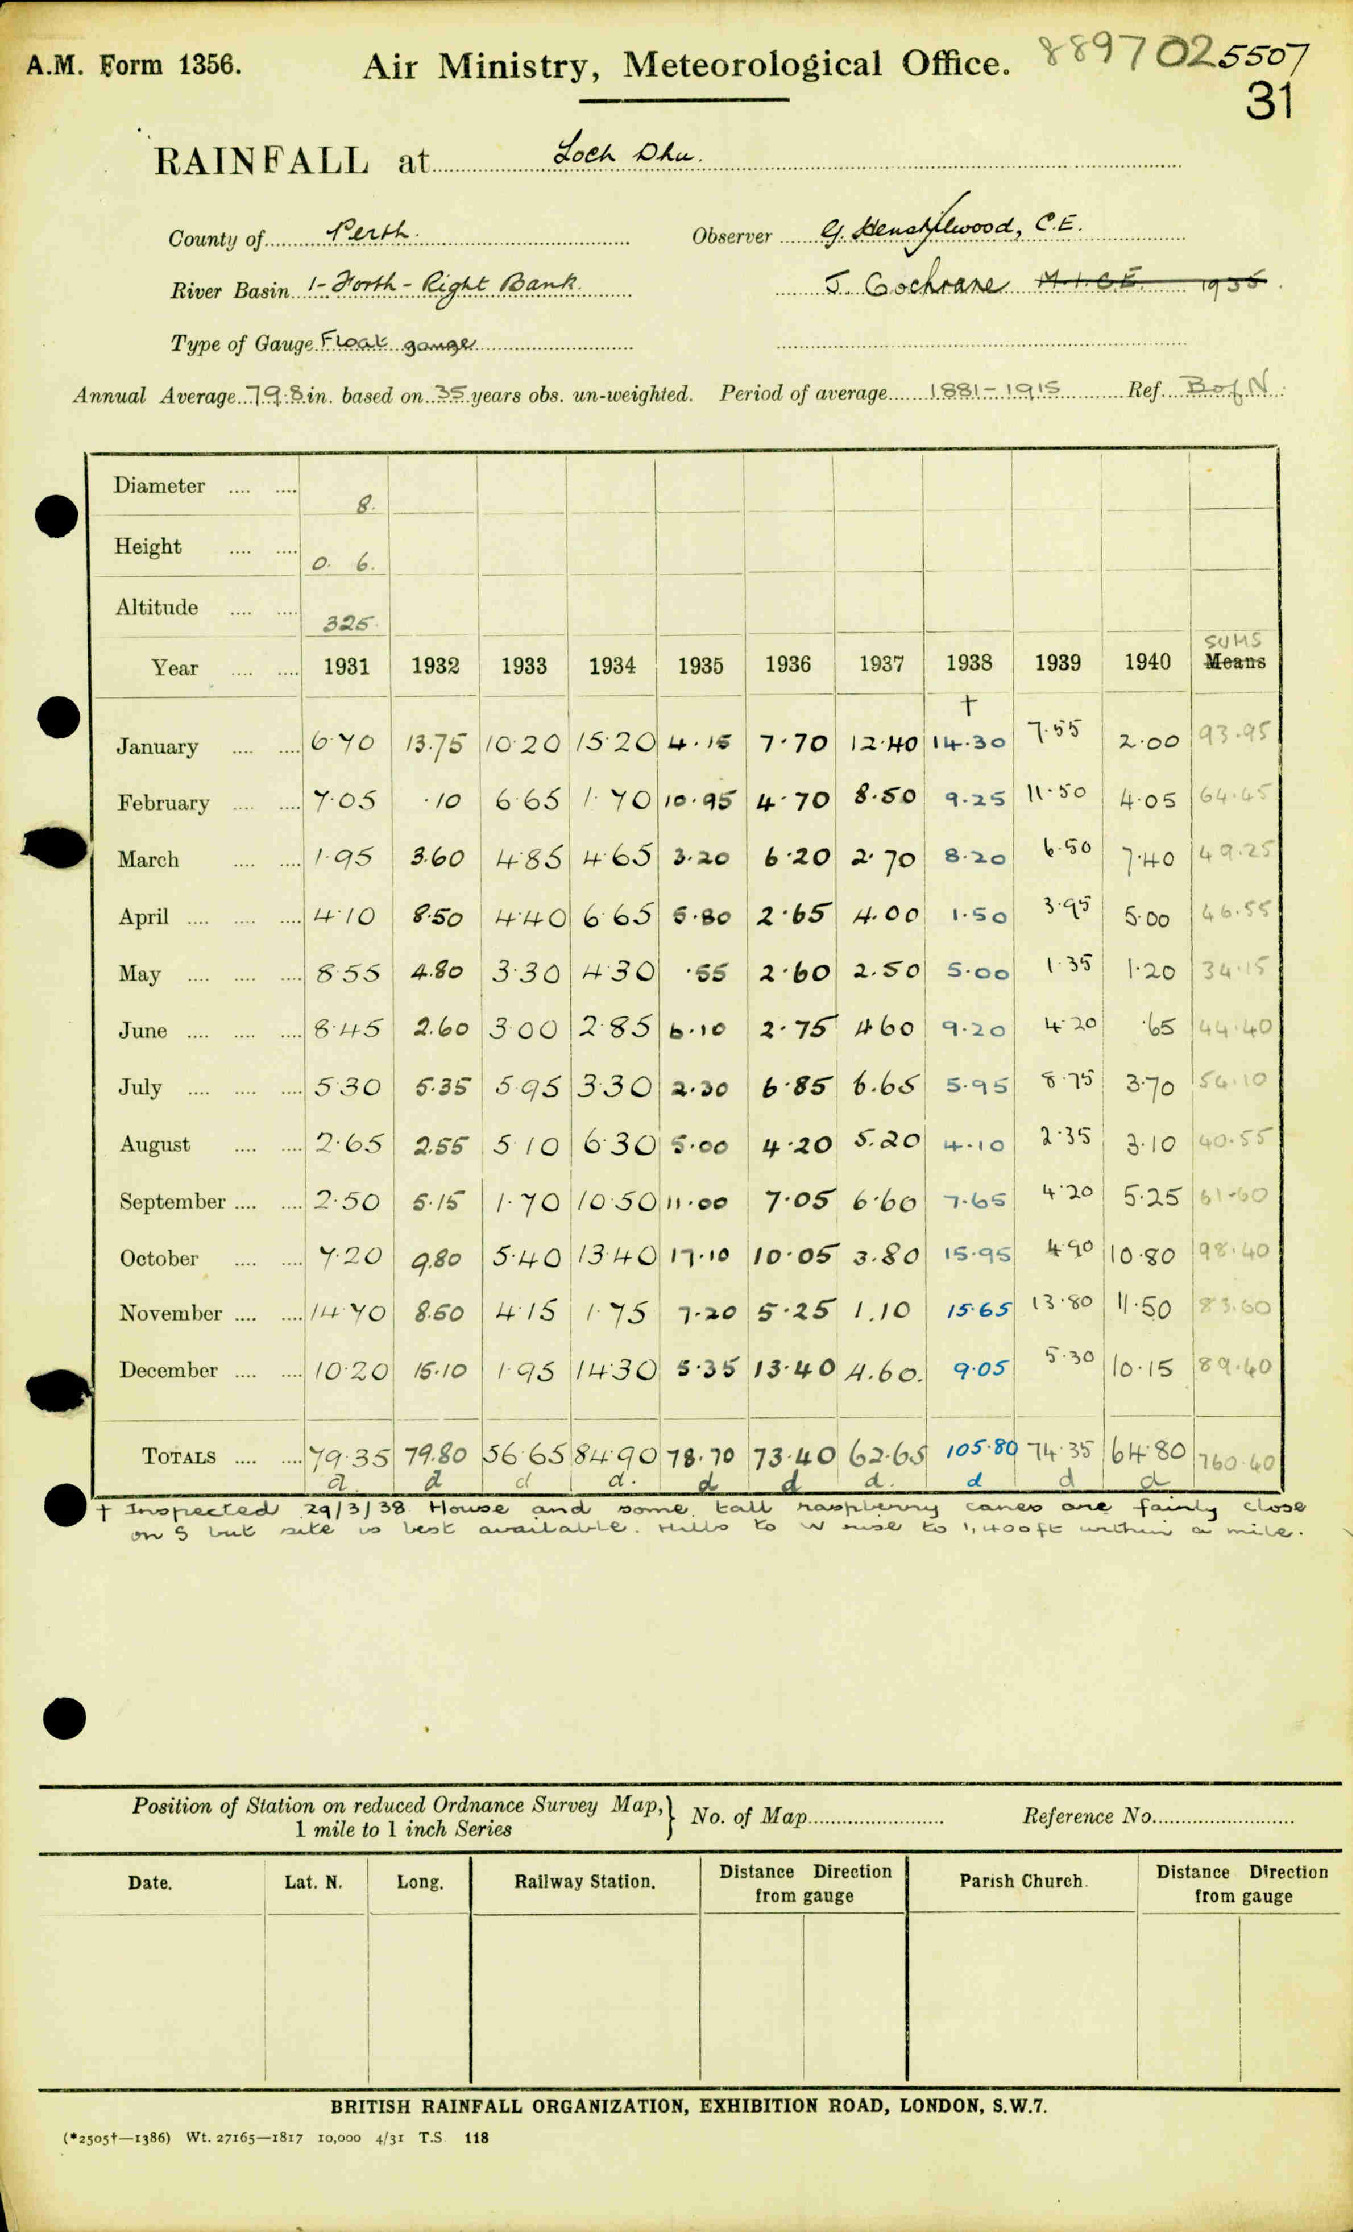 A.M. Form 1356. Air Ministry, Meteorological Office. 889702 5507
31
RAINFALL at Loch Dhu.
County of Perth. Observer G. Henshilwood, C.E.
River Basin 1- Forth - Right Bank. J. Cochrane M.I.C.E. 1935
Type of Gauge Float gauge
Annual Average 79.8 in. based on 35 years obs. un-weighted. Period of average 1881-1915 Ref. B of N.
Diameter 8.
Height 0. 6.
Altitude 325.
SUMS
Year 1931 1932 1933 1934 1935 1936 1937 1938 1939 1940 Means
†
January 6.70 13.75 10.20 15.20 4.15 7.70 12.40 14.30 7.55 2.00 93.95
February 7.05 .10 6.65 1.70 10.95 4.70 8.50 9.25 11.50 4.05 64.45
March 1.95 3.60 4.85 4.65 3.20 6.20 2.70 8.20 6.50 7.40 49.25
April 4.10 8.50 4.40 6.65 5.80 2.65 4.00 1.50 3.95 5.00 46.55
May 8.55 4.80 3.30 4.30 .55 2.60 2.50 5.00 1.35 1.20 34.15
June 8.45 2.60 3.00 2.85 6.10 2.75 4.60 9.20 4.20 .65 44.40
July 5.30 5.35 5.95 3.30 2.30 6.85 6.65 5.95 8.75 3.70 54.10
August 2.65 2.55 5.10 6.30 5.00 4.20 5.20 4.10 2.35 3.10 40.55
September 2.50 5.15 1.70 10.50 11.00 7.05 6.60 7.65 4.20 5.25 61.60
October 7.20 9.80 5.40 13.40 17.10 10.05 3.80 15.95 4.90 10.80 98.40
November 14.70 8.50 4.15 1.75 7.20 5.25 1.10 15.65 13.80 11.50 83.60
December 10.20 15.10 1.95 14.30 5.35 13.40 4.60. 9.05 5.30 10.15 89.40
TOTALS 79.35 79.80 56.65 84.90 78.70 73.40 62.65 105.80 74.35 64.80 760.40
d. d d d. d d d. d d d
† Inspected 29/3/38 House and some tall raspberry canes are fairly close
on S but site is best available. Hills to W rise to 1,400ft within a mile.
Position of Station on reduced Ordnance Survey Map, 1 mile to 1 inch Series } No. of Map Reference No.
Date. Lat. N. Long. Railway Station. Distance Direction from gauge Parish Church. Distance Direction from gauge
BRITISH RAINFALL ORGANIZATION, EXHIBITION ROAD, LONDON, S.W.7.
(*2505†—1386) Wt. 27165—1817 10,000 4/31 T.S. 118